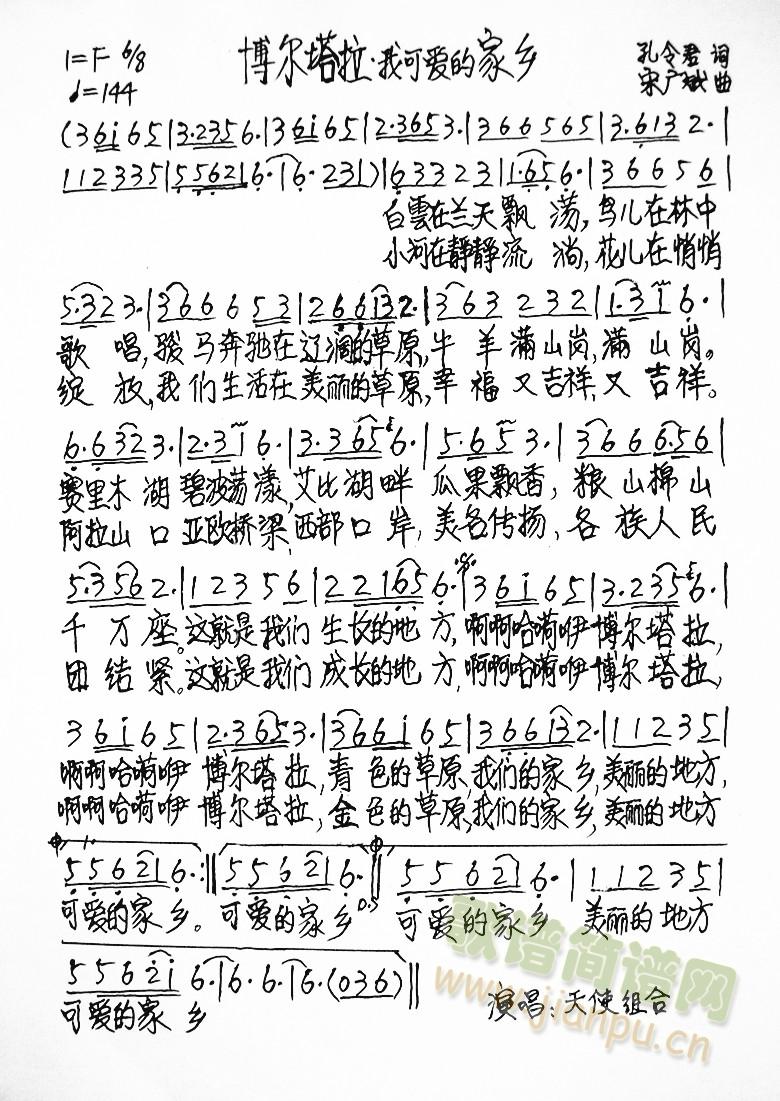 1=F 6/8 博尔塔拉·我可爱的家乡 孔令君 词
♩=144 宋广斌 曲
(36i65|3.2356.|36i65|2.3653.|366565|3.6132.|
112335|55621|6.|6.231)|63323|1.656.|36656|
白雲在兰天飘 荡,鸟儿在林中
小河在静静流 淌,花儿在悄悄
5.323.|366653|266132.|363232|1.3i6.|
歌 唱,骏马奔驰在辽阔的草原,牛 羊满山岗,满 山岗。
绽 放,我们生活在美丽的草原,幸 福又吉祥,又 吉祥。
6.6323.|2.3i6.|3.3656.|5.653.|366656|
赛里木 湖 碧波荡漾,艾比湖畔 瓜果飘香, 粮山棉山
阿拉山 口 亚欧桥梁,西部口 岸,美名传扬,各族人民
5.3562.|123556|221656.|36i65|3.2356.|
千 万座。这就是我们 生长的地 方,啊啊哈嗬咿博尔塔拉,
团 结紧。这就是我们 成长的地 方,啊啊哈嗬咿博尔塔拉,
36i65|2.3653.|366i65|366132.|11235|
啊啊哈嗬咿 博尔塔拉,青 色的草原,我们的家乡,美丽的地方,
啊啊哈嗬咿 博尔塔拉,金 色的草原,我们的家乡,美丽的地方
55621 6.:||55621 6.||55621 6.|11235|
可爱的家 乡。可爱的家 乡 D.S 可爱的家乡 美丽的地方
5562i 6.|6.6.|6.(036)||
可爱的家 乡 演唱:天使组合
歌谱简谱网
www.jianpu.cn